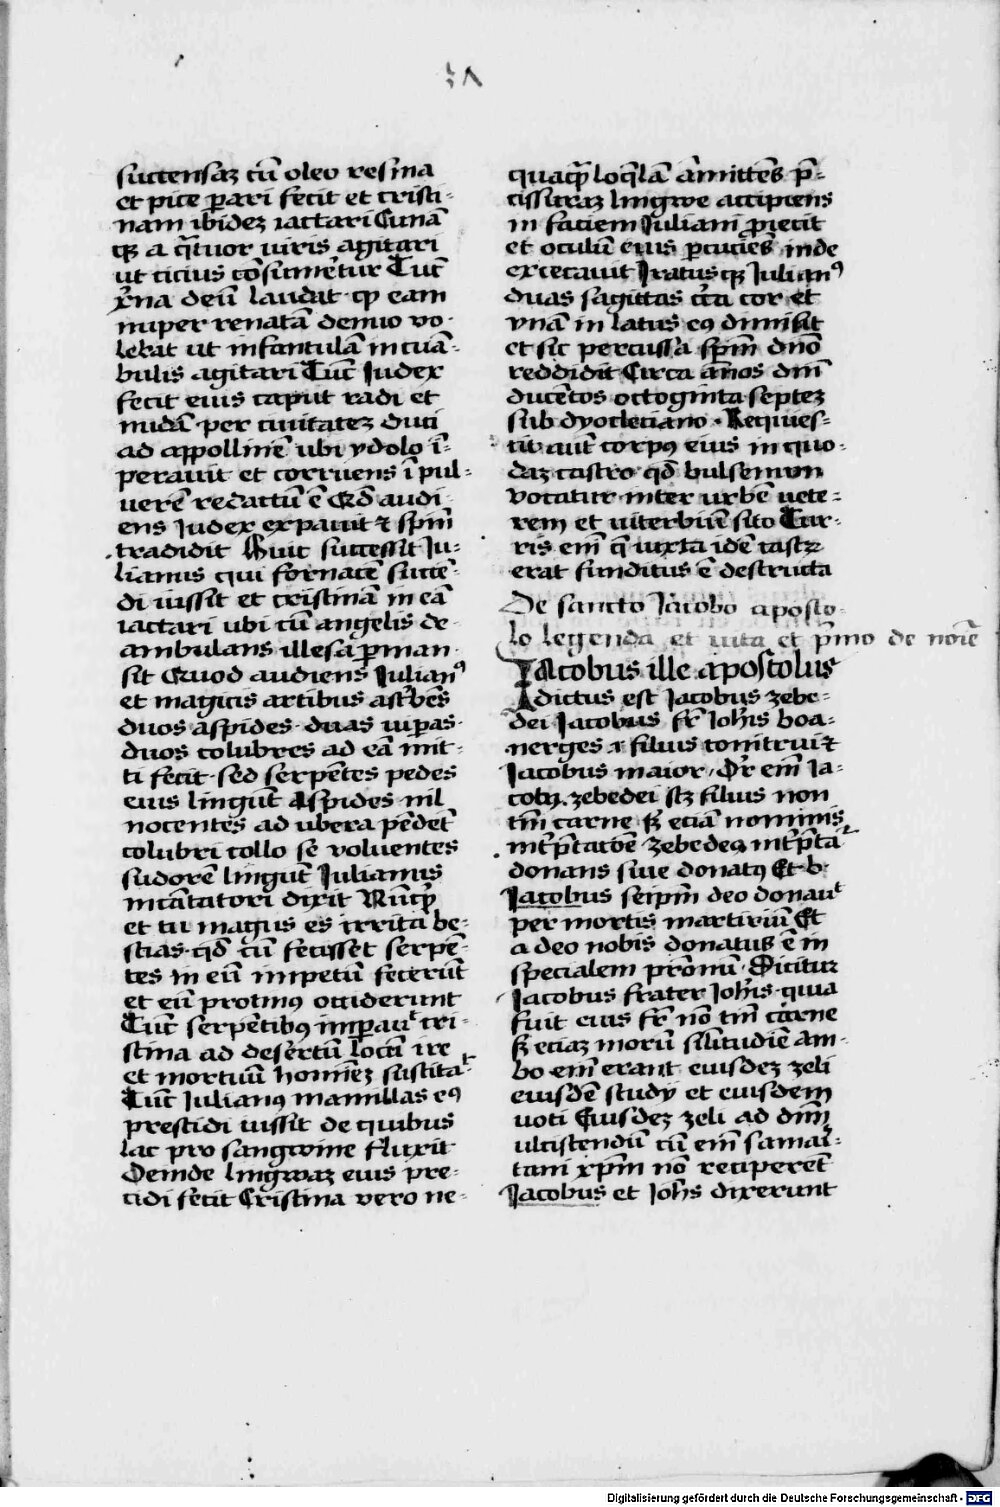 succensaʒ cū oleo resina
et pice ꝑari fecit et cristi-
nam ibideʒ iactari Cunā
qʒ a q̄tuor uiris agitari
ut cicius cōsumer̄tur Tūc
xp̄na deū laudat ꝙ eam
nuper renatā denuo vo-
lebat ut infantulā in cuā-
bulis agitari Tūc Judex
fecit eius caput radi et
nudā per ciuitateʒ duci
ad appollinē ubi ydolo ī-
perauit et corruens ī pul-
uerē redactū ē Qd̄ audi-
ens Judex expauit ⁊ sp̄m
tradidit Huic successit Ju-
lianus qui fornacē succē-
di iussit et cristinā in eā
iactari ubi cū angelis de-
ambulans illesa ꝑman-
sit Quod audiens Julianꝰ
et magicis artibus astˀbēs
duos aspides duas uiꝑas
duos colubres ad eā mit-
ti fecit sed serpētes pedes
eius lingūt Aspides nil
nocentes ad ubera pēdēt
colubri collo se voluentes
sudorē lingūt Julianus
incātatori dixit Nūcꝗ
et tu magus es irrita be-
stias qd̄ cū fecisset serpē-
tes in eū impetū fecerūt
et eū protinꝰ occiderunt
Tūc serpētibꝰ imꝑauᵗ cri-
stina ad desertū locū ire
et mortuū homineʒ suscitaᵗ
Tūc Julianꝰ mamillas eiꝰ
prescidi iussit de quibus
lac pro sangwine fluxit
Deinde lingwaʒ eius pre-
cidi fecit Cristina vero ne-
quaꝗ̄ loq̄lā āmittēs p̄-
cissuraʒ lingwe accipiens
in faciem Juliani proiecit
et oculū eius ꝑcuciēs inde
excecauit Iratusqʒ Julianꝰ
duas sagittas cˀca cor et
vnā in latus eiꝰ dimisit
et sic percussa sp̄m dn̄o
reddidit Circa ānos dn̄i
ducētos octoginta septeʒ
sub dyocleciano Requies-
cit aut̄ corpꝰ eius in quo-
daʒ castro qd̄ bulsenum
vocatur inter urbē uete-
rem et uiterbiū sito Tur-
ris em̄ q̄ iuxta idē castꝝ
erat funditus ē destructa
De sancto Jacobo aposto-
lo legenda et uita et p̄mo de noīe
Jacobus ille apostolus
dictus est Jacobus zebe-
dei Jacobus fr̄ Joh̄is boa-
nerges .i. filius tonitrui ⁊
Jacobus maior Dr̄ em̄ Ja-
cobꝰ zebedei scʒ filius non
tm̄ carne sʒ eciā nominis
int̄p̄tac̄oē zebedeꝰ int̄p̄taᵗ
donans siue donatꝰ Et b.
Jacobus seip̄m deo donauᵗ
per mortis martiriū Et
a deo nobis donatus ē in
specialem pr̄onū Dicitur
Jacobus frater Joh̄is quia
fuit eius fr̄ nō tm̄ carne
sʒ eciaʒ morū sil̄itudīe am-
bo em̄ erant eiusdeʒ zeli
eiusdē study et eiusdem
uoti Eiusdeʒ zeli ad dn̄m
ulciscendū cū em̄ samai-
tani xp̄m nō reciperēt
Jacobus et Joh̄s dixerunt
Digitalisierung gefördert durch die Deutsche Forschungsgemeinschaft - DFG